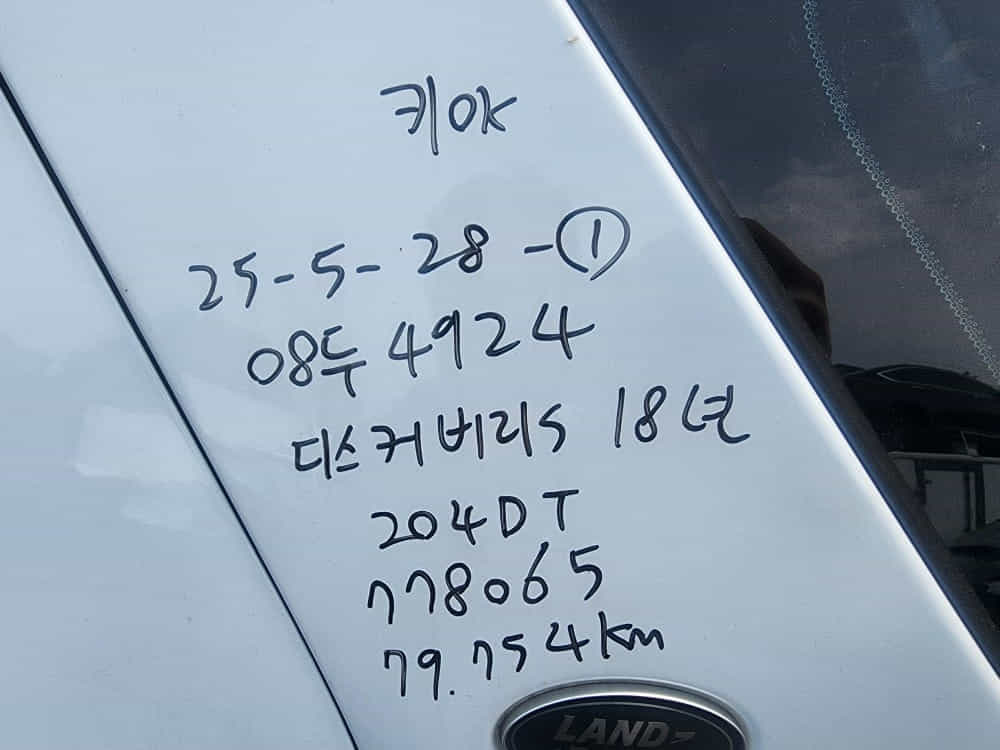 키OK
25-5-28-①
08두4924
디스커버리5 18년
204DT
778065
79.754km
LAND